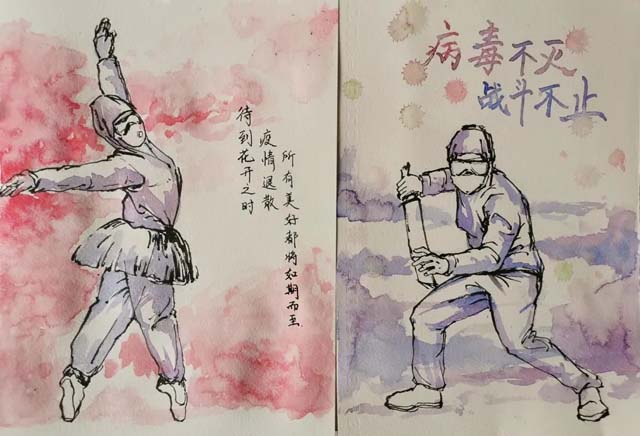 待到花开之时
疫情退散
所有美好都将如期而至
病毒不灭
战斗不止